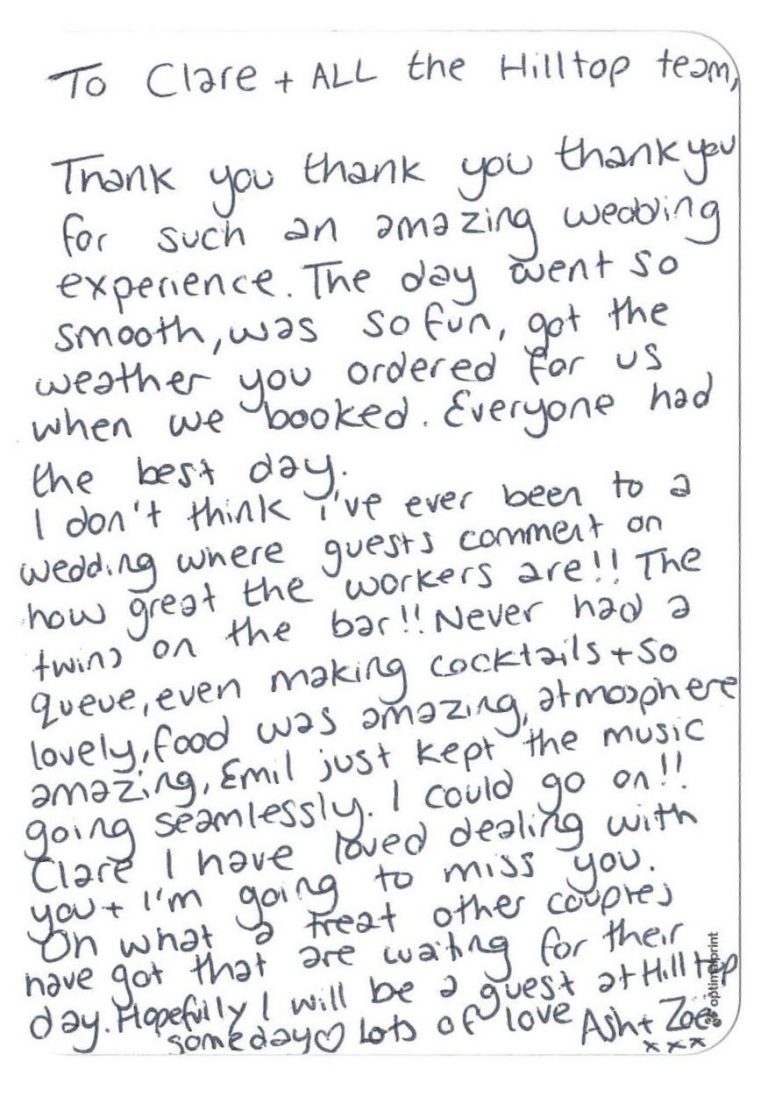 To Clare + ALL the Hilltop team,
Thank you thank you thank you
for such an amazing wedding
experience. The day went so
smooth, was so fun, got the
weather you ordered for us
when we booked. Everyone had
the best day.
I don't think i've ever been to a
wedding where guests comment on
how great the workers are!! The
twins on the bar!! Never had a
queue, even making cocktails + so
lovely, food was amazing, atmosphere
amazing, Emil just kept the music
going seamlessly. I could go on!!
Clare I have loved dealing with
you + I'm going to miss you.
Oh what a treat other couples
have got that are waiting for their
day. Hopefully I will be a guest at Hilltop
someday♡ Lots of love Ash + Zoë
xxx
optimalprint